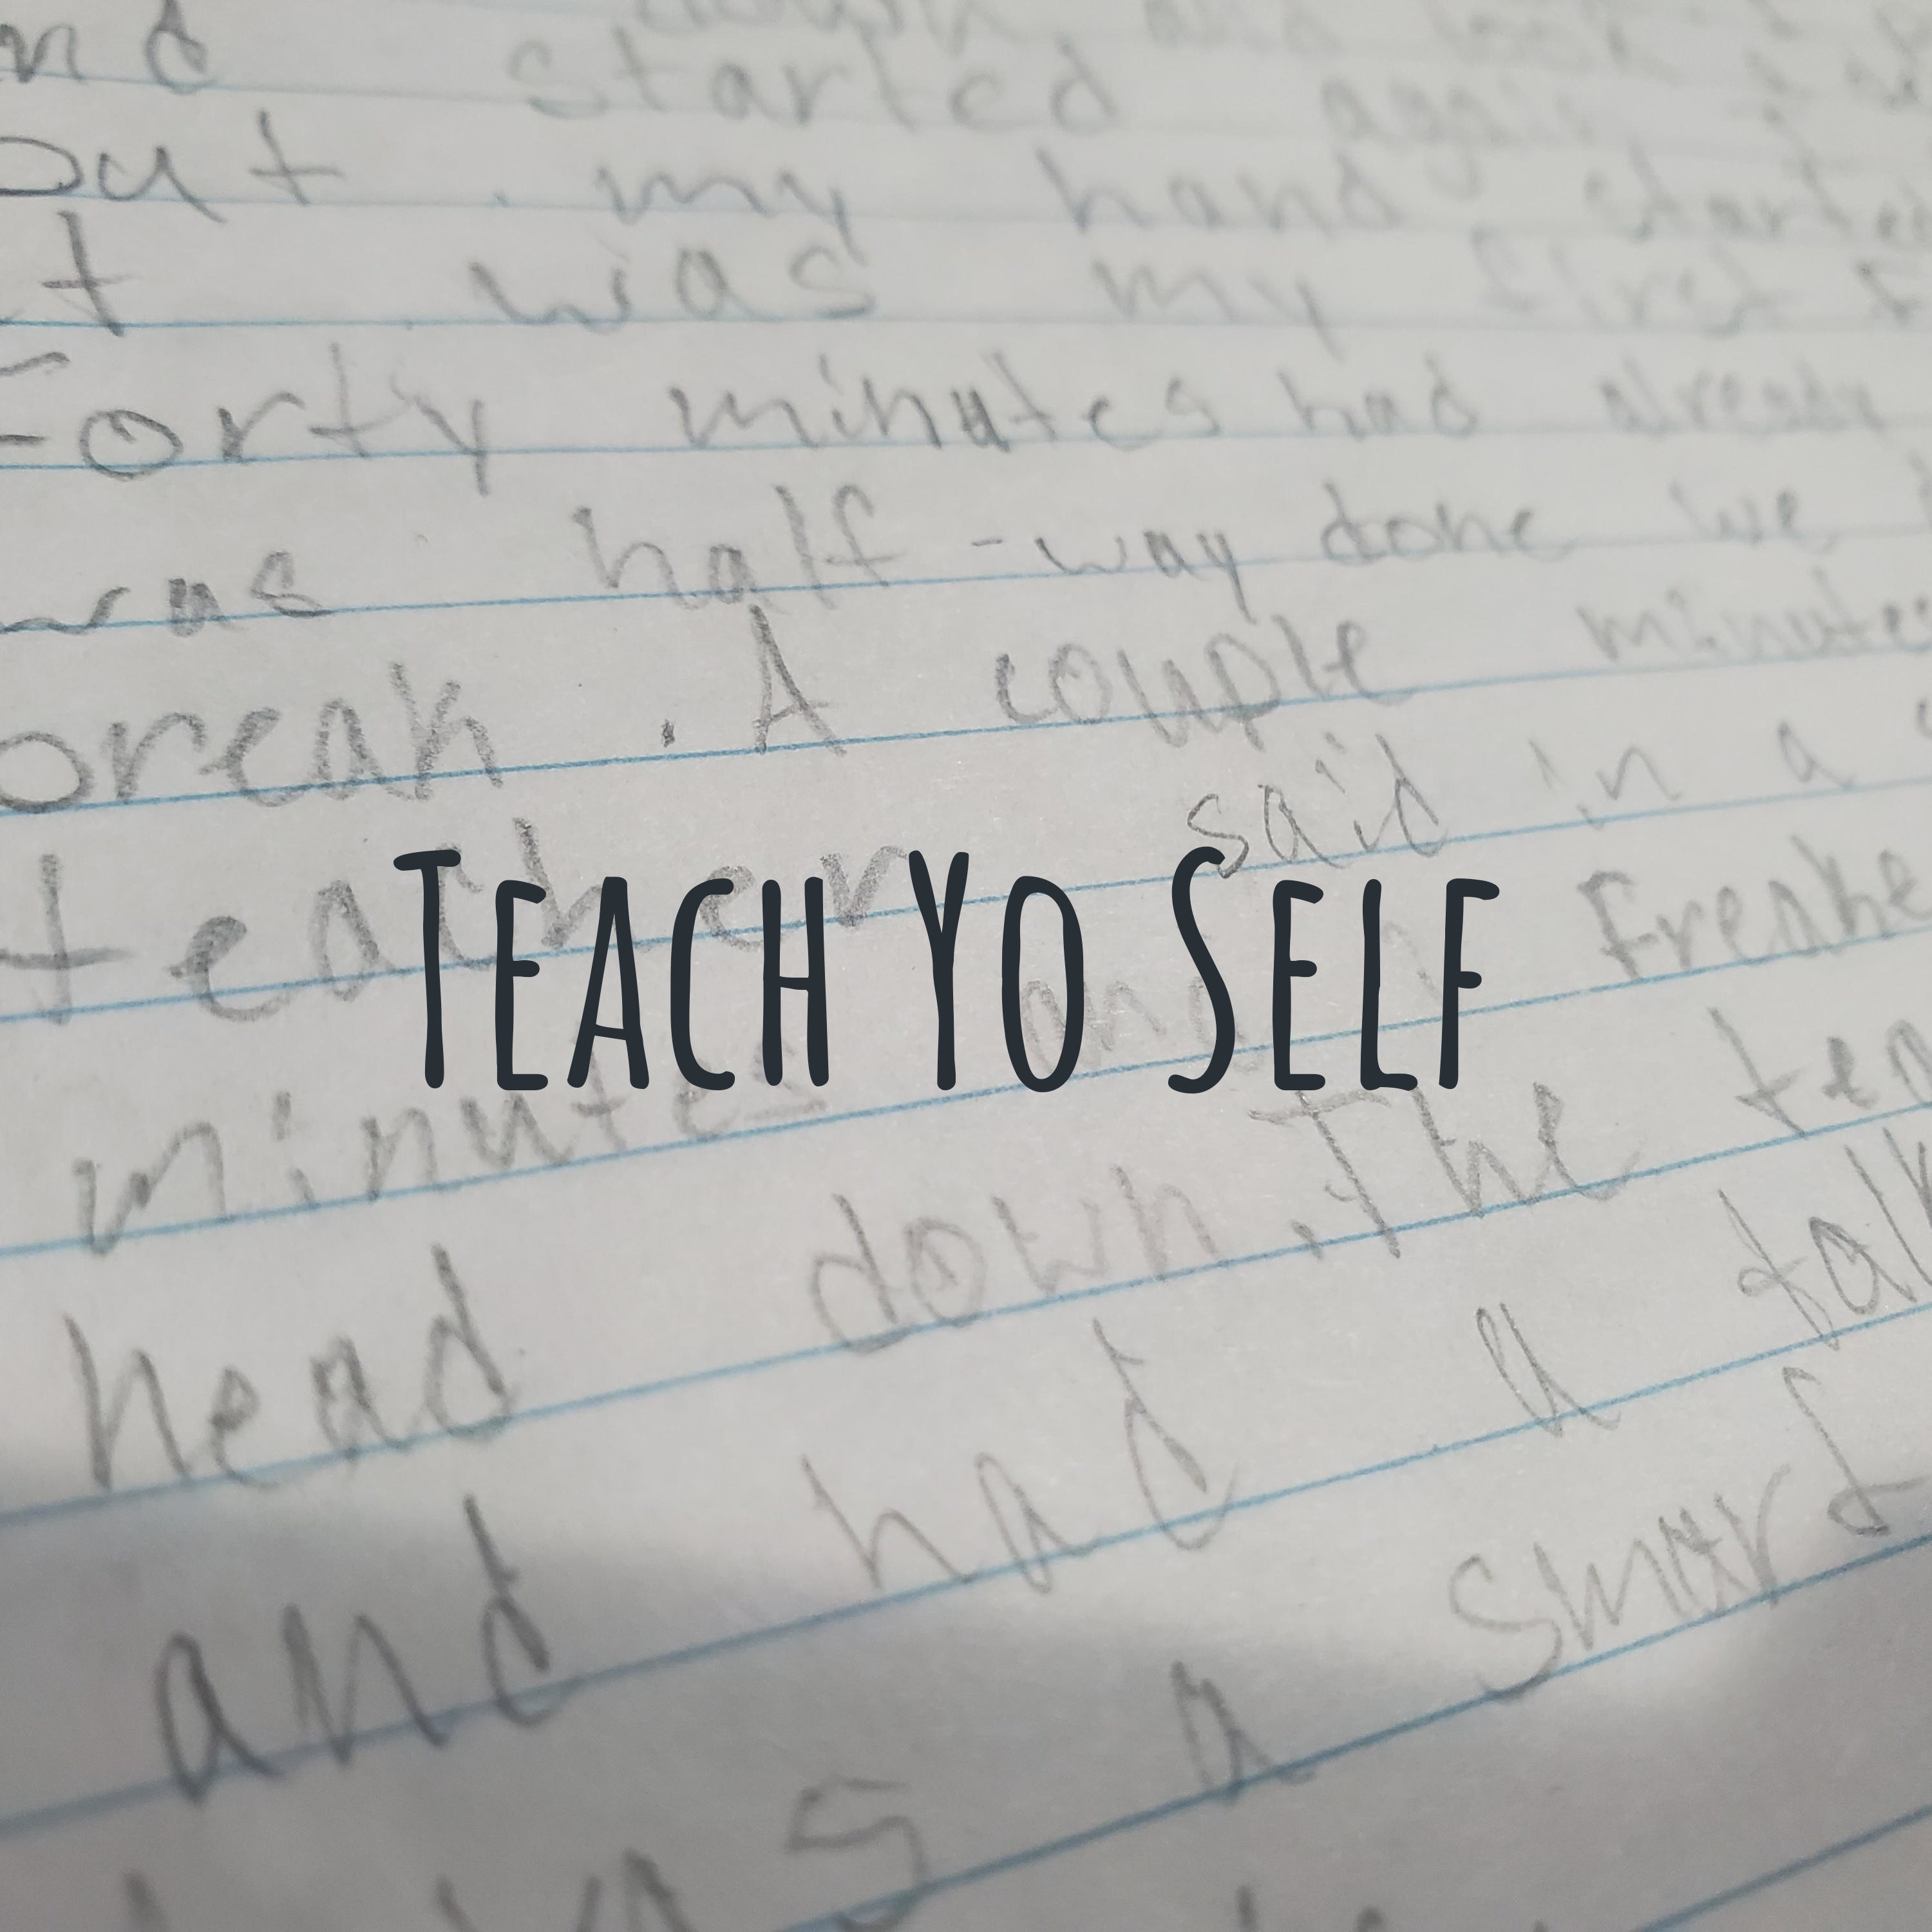 started again
but . my hand started
was my first
Forty minutes had already
was half-way done we
break . A couple minutes
teacher said in a
minutes and I Freake
head down. The tea
and had a talk
was a smart
Teach Yo Self